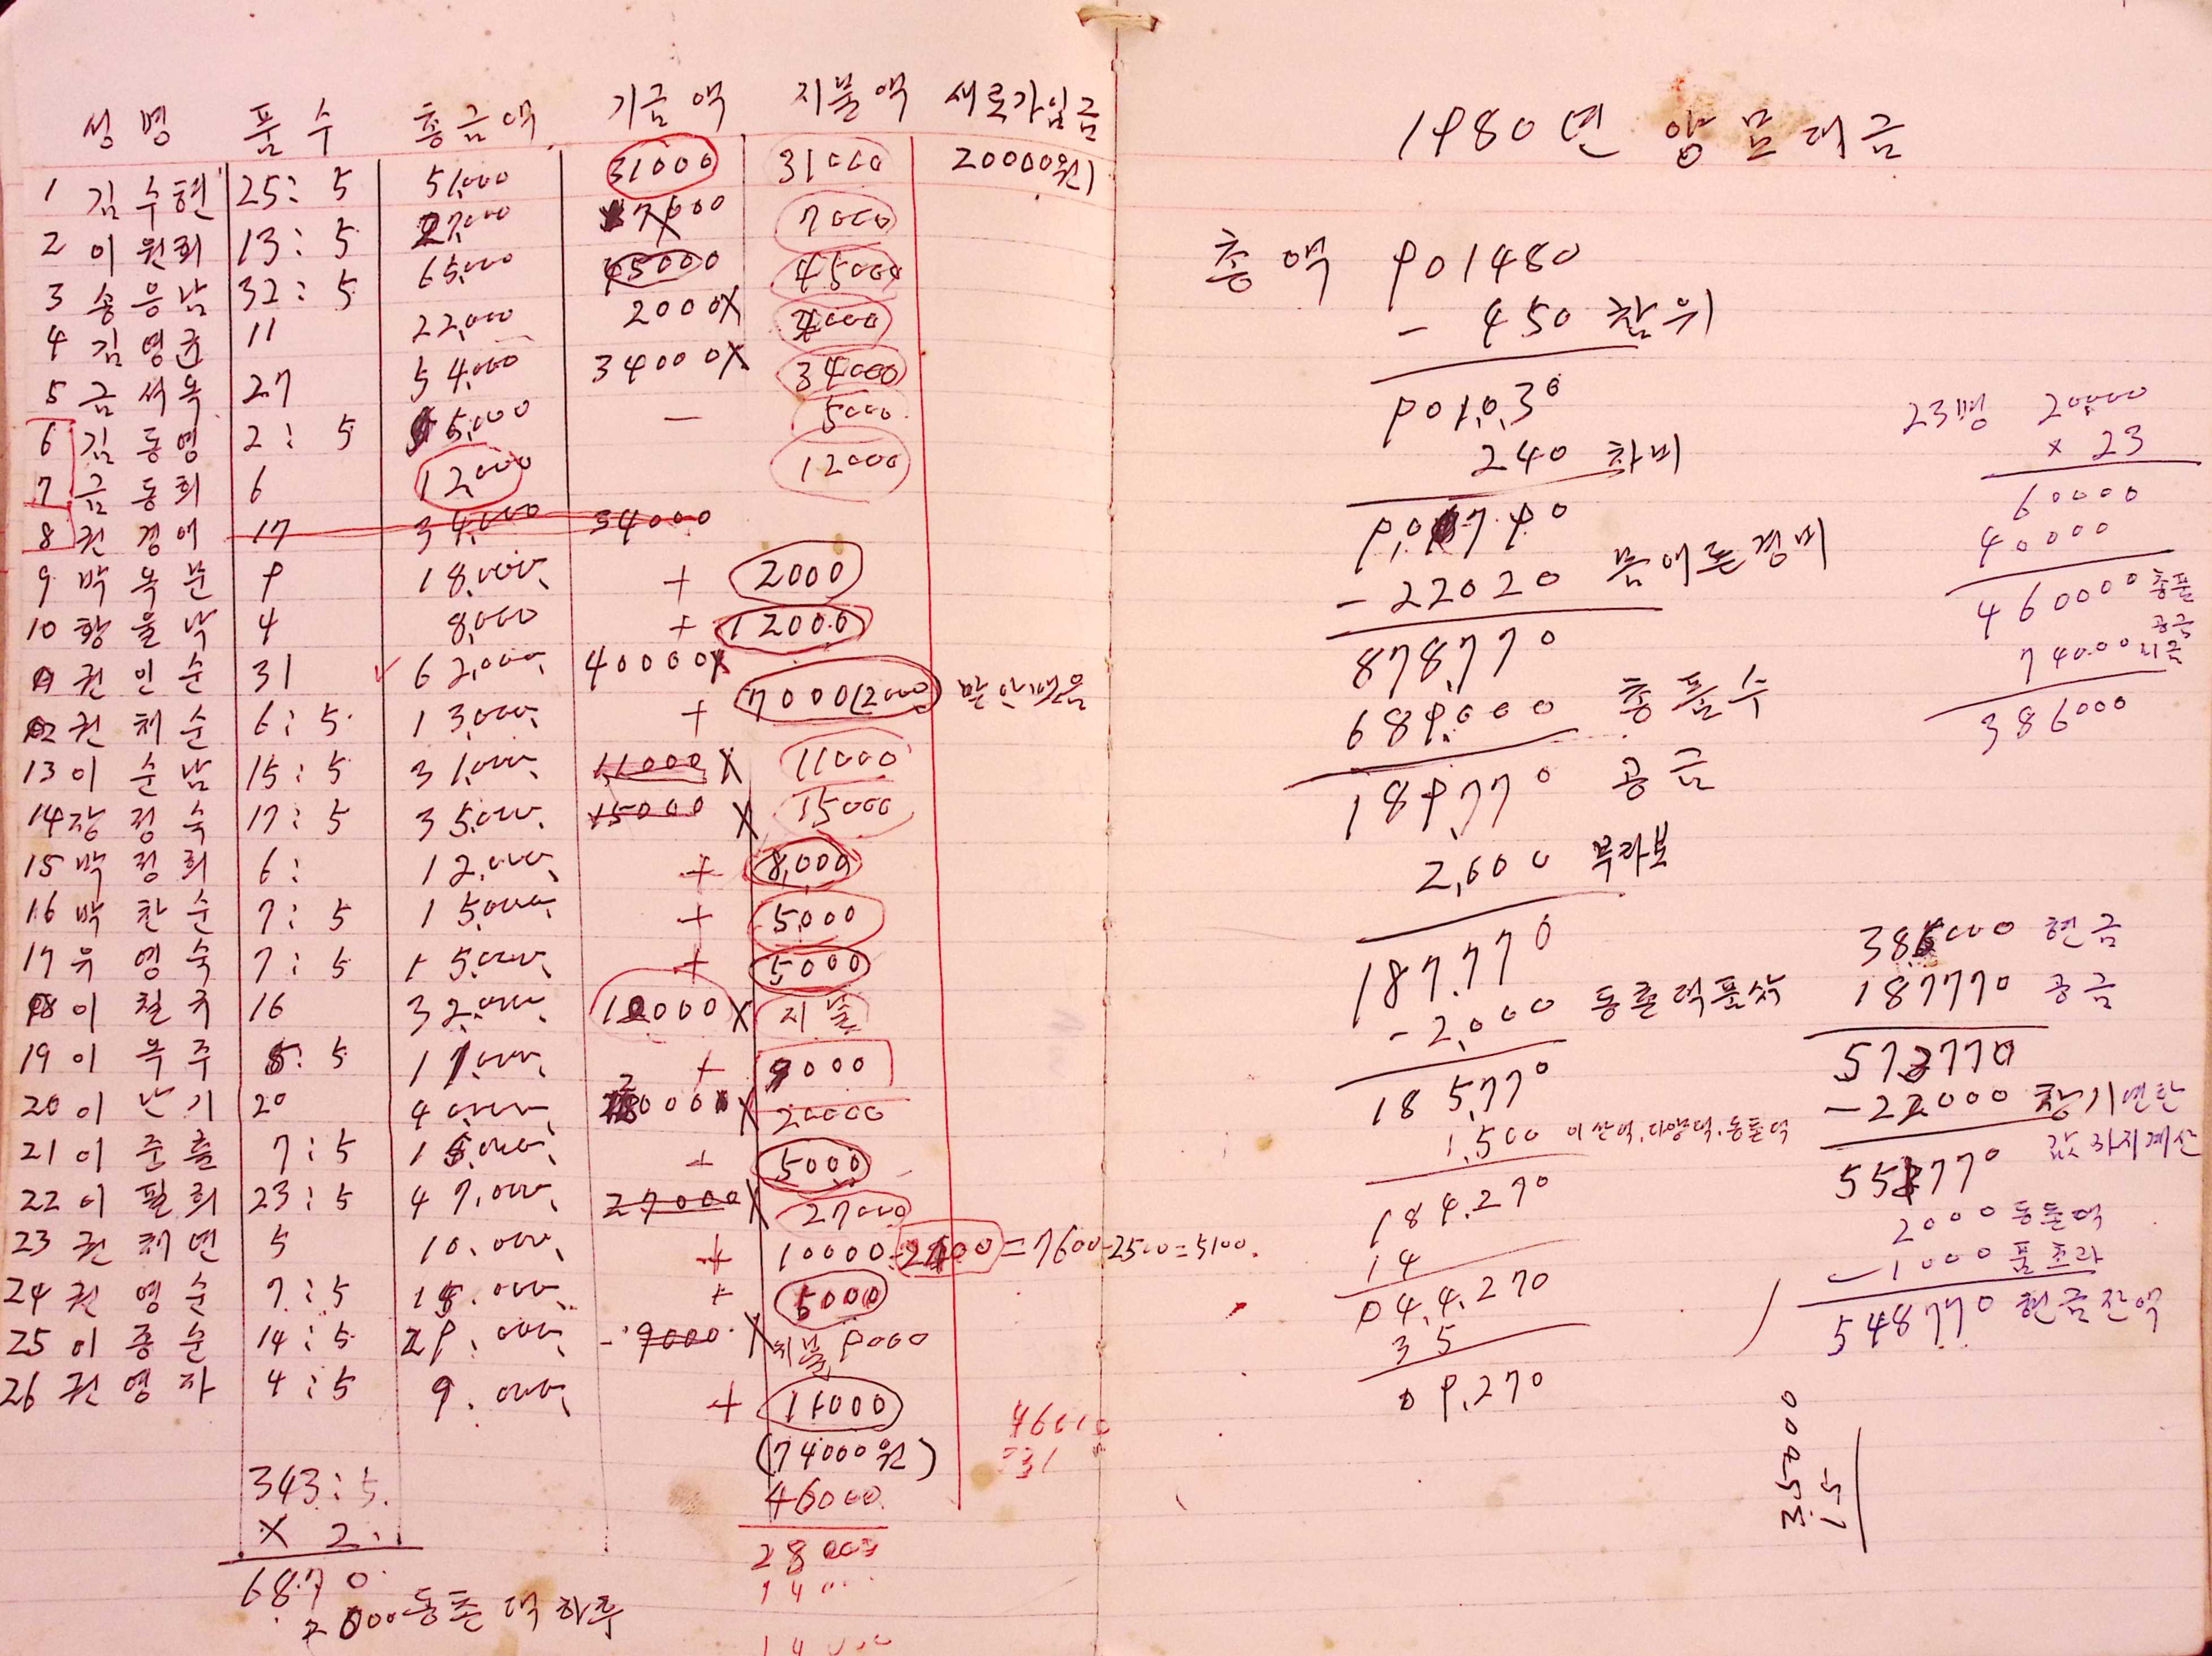 성명 품수 총금액 기금액 지불액 새로가입금
1 김수현 25:5 51,000 31000 31000 20000원)
2 이원희 13:5 27,000 7000 7000
3 송응남 32:5 65,000 45000 45000
4 김영균 11 22,000 2000X 2000
5 금석옥 27 54,000 34000X 34000
6 김동영 2:5 5,000 - 5000
7 금동희 6 12,000 12000
8 권경애 17 34,000 34000
9 박옥분 9 18,000 + 2000
10 황을낙 4 8,000 + 12000
11 권인순 31 62,000 40000X
12 권채순 6:5 13,000 + 7000(2000) 말안매음
13 이순남 15:5 31,000 11000 X 11000
14 장정숙 17:5 35,000 15000 X 15000
15 박정희 6: 12,000 + 8,000
16 박찬순 7:5 15,000 + 5,000
17 우영숙 7:5 15,000 + 5000
18 이칠국 16 32,000 12000 X 지불
19 이옥주 8:5 17,000 + 9000
20 이난기 20 40,000 20000 X 20000
21 이준홀 7:5 15,000 + 5000
22 이필희 23:5 47,000 27000 X 27000
23 권채연 5 10,000 + 10000-2400=7600-2500=5100.
24 권영순 7:5 15,000 + 5000
25 이종순 14:5 29,000 -9000 X 지불 9000
26 권영자 4:5 9,000 + 11000
(74000원)
46000
28000
14000
14000
46000
343:5
X 2
6870
2000 동촌댁하루
1980년 양모대금
총액 901480
- 450 찰위
901,030
240 차비
900,790
-22020 품에든경비
878,770
689,000 총품수
189,770 공금
2,000 부라보
187,770
-2,000 동촌댁품삯
185,770
1,500 이산댁,다양댁,동촌댁
184,270
14
044,270
35
09,270
23명 20,000
x 23
60000
40000
460000 총품
공금
74000 비금
386000
386000 현금
187770 공금
573770
-22000 장기연탄
551770 값까지계산
2000 동촌댁
-1000 품초과
548770 현금잔액
352000
15